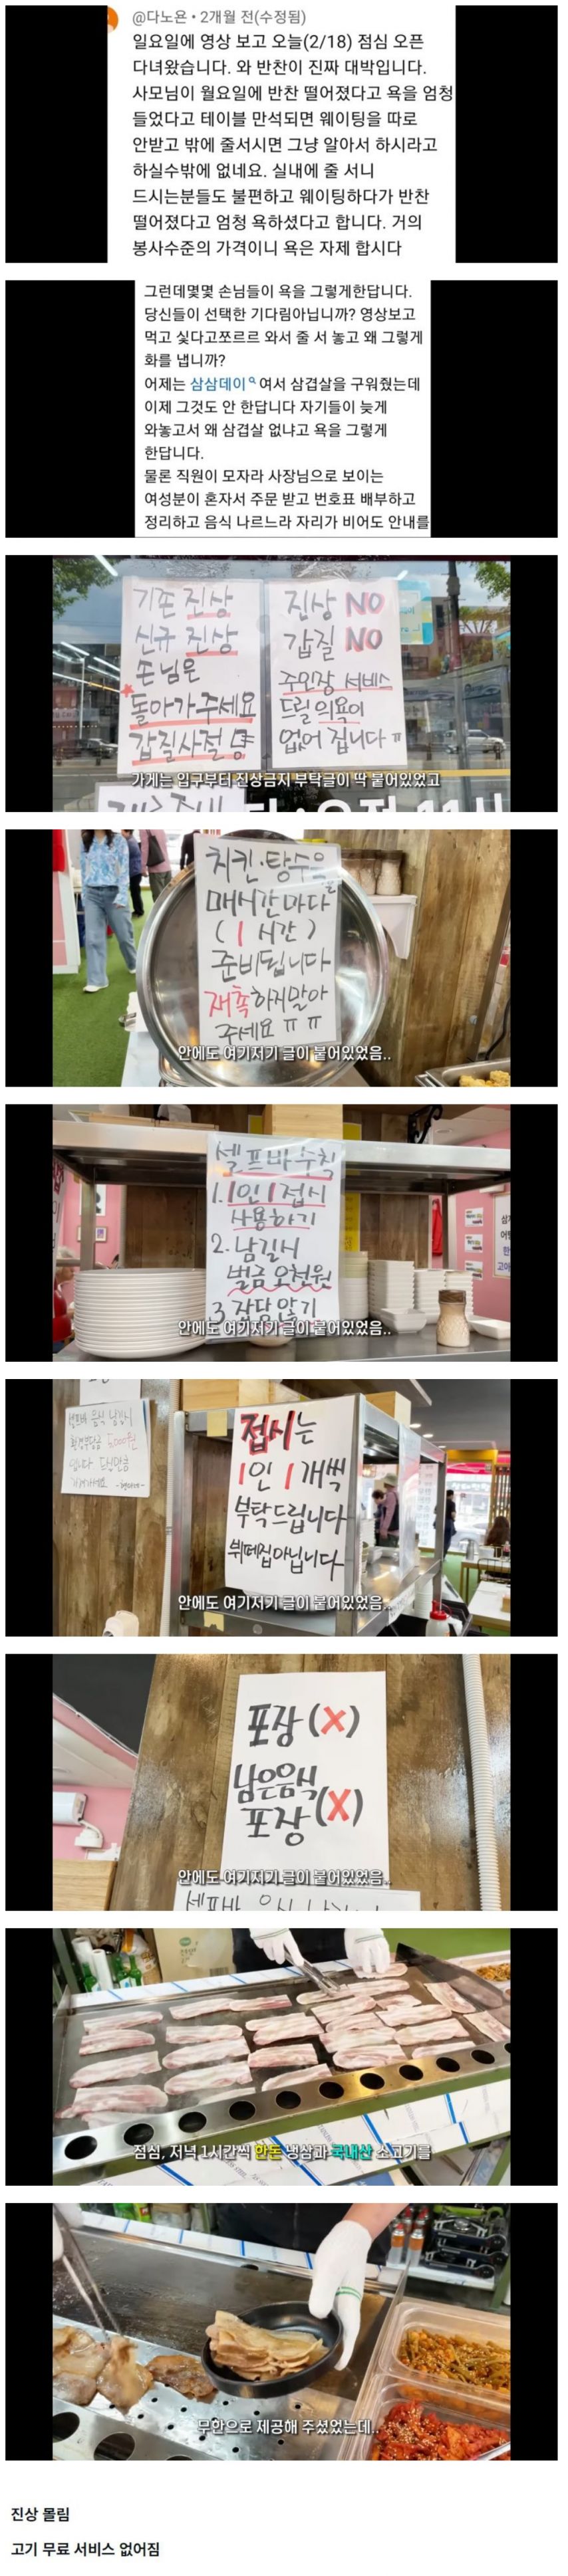 @다노욘 • 2개월 전(수정됨)
일요일에 영상 보고 오늘(2/18) 점심 오픈
다녀왔습니다. 와 반찬이 진짜 대박입니다.
사모님이 월요일에 반찬 떨어졌다고 욕을 엄청
들었다고 테이블 만석되면 웨이팅을 따로
안받고 밖에 줄서시면 그냥 알아서 하시라고
하실수밖에 없네요. 실내에 줄 서니
드시는분들도 불편하고 웨이팅하다가 반찬
떨어졌다고 엄청 욕하셨다고 합니다. 거의
봉사수준의 가격이니 욕은 자제 합시다
그런데몇몇 손님들이 욕을 그렇게한답니다.
당신들이 선택한 기다림아닙니까? 영상보고
먹고 싶다고쪼르르 와서 줄 서 놓고 왜 그렇게
화를 냅니까?
어제는 삼삼데이 여서 삼겹살을 구워줬는데
이제 그것도 안 한답니다 자기들이 늦게
와놓고서 왜 삼겹살 없냐고 욕을 그렇게
한답니다.
물론 직원이 모자라 사장님으로 보이는
여성분이 혼자서 주문 받고 번호표 배부하고
정리하고 음식 나르느라 자리가 비어도 안내를
기존 진상
신규 진상
손님은
돌아가 주세요
갑질사절
진상 NO
갑질 NO
주인장 서비스
드릴 의욕이
없어 집니다 ㅠ
가게는 입구부터 진상금지 부탁글이 딱 붙어있었고
치킨·탕수육
매시간마다
( 1 시간 )
준비됩니다
재촉하지말아
주세요 ㅠㅠ
안에도 여기저기 글이 붙어있었음..
셀프바 수칙
1. 1인 1접시
사용하기
2. 남길시
벌금 오천원
3. 잡담 않기
안에도 여기저기 글이 붙어있었음..
셀프바 음식 남길시
환경부담금 5000원
입니다
접시는
1인 1개씩
부탁드립니다
뷔페집아닙니다
안에도 여기저기 글이 붙어있었음..
포장 (X)
남은음식
포장 (X)
안에도 여기저기 글이 붙어있었음..
점심, 저녁 1시간씩 한돈 냉삼과 국내산 소고기를
무한으로 제공해 주셨었는데..
진상 몰림
고기 무료 서비스 없어짐